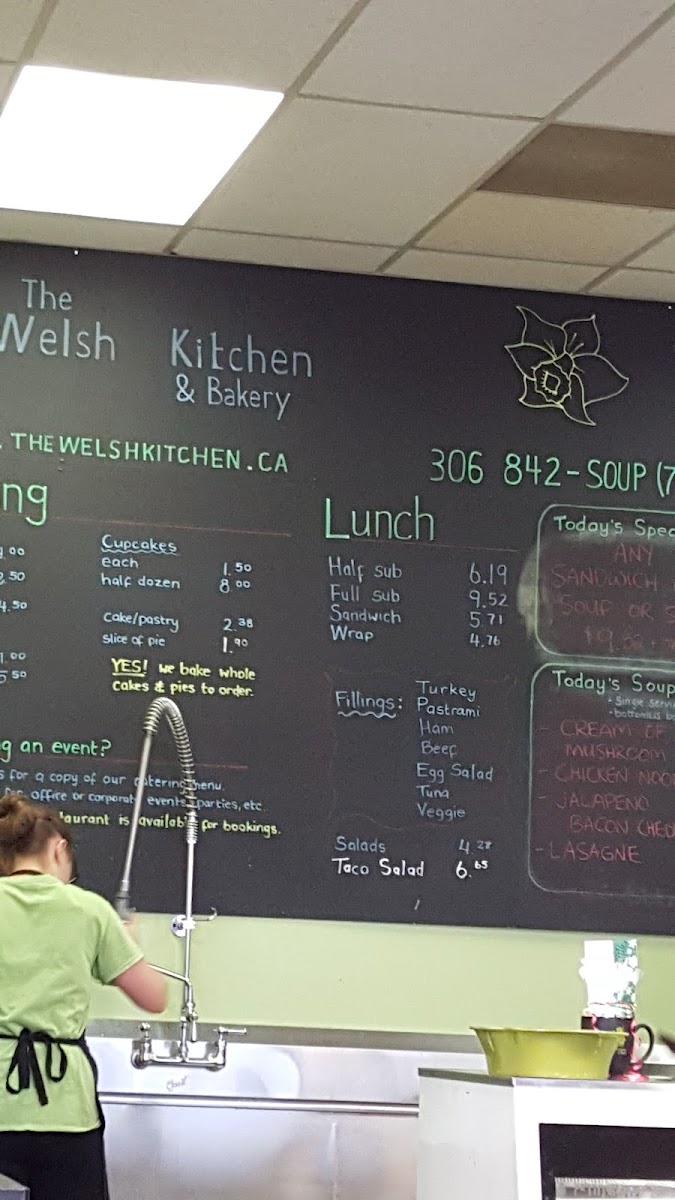 The
Welsh Kitchen
& Bakery
THEWELSHKITCHEN.CA
306 842-SOUP (7
ng
.00
.50
4.50
.00
5.50
Cupcakes
each 1.50
half dozen 8.00
Cake/pastry 2.38
slice of pie 1.90
YES! we bake whole
cakes & pies to order.
g an event?
s for a copy of our catering menu.
for office or corporate events, parties, etc.
taurant is available for bookings.
Lunch
Half sub 6.19
Full sub 9.52
Sandwich 5.71
Wrap 4.76
Fillings: Turkey
Pastrami
Ham
Beef
Egg Salad
Tuna
Veggie
Salads 4.28
Taco Salad 6.65
Today's Spec
ANY
SANDWICH
SOUP OR S
Today's Soup
- CREAM OF
MUSHROOM
- CHICKEN NOO
- JALAPENO
BACON CHED
- LASAGNE